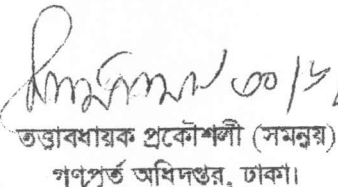 ৩০/৬
তত্ত্বাবধায়ক প্রকৌশলী (সমন্বয়)
গণপূর্ত অধিদপ্তর, ঢাকা।